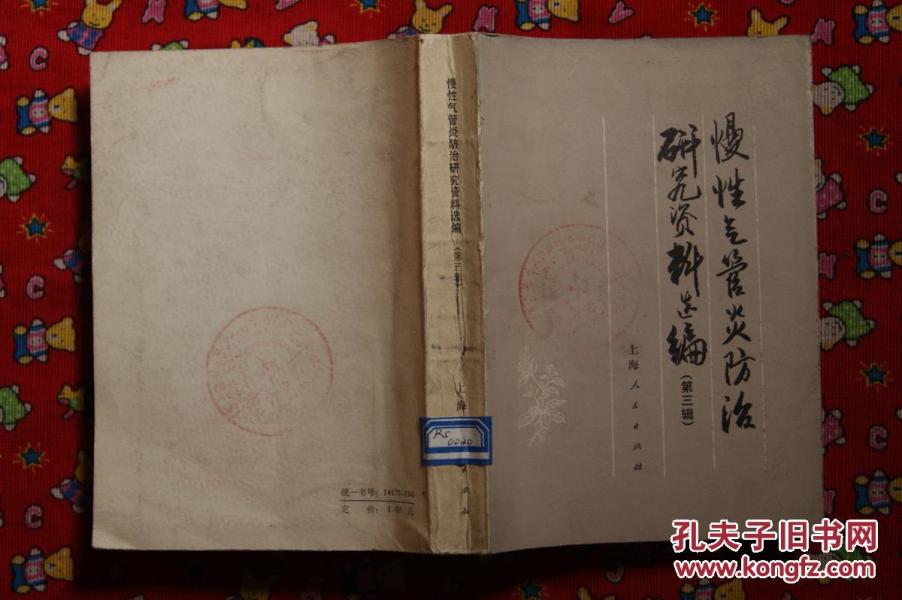 慢性气管炎防治
研究资料选编
(第三辑)
上海人民出版社
慢性气管炎防治研究资料选编
(第三辑)
上海
出版社
RS
0020
统一书号：14171·
定 价：1.05 元
孔夫子旧书网
www.kongfz.com